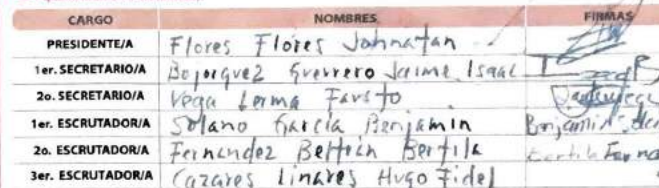 CARGO NOMBRES FIRMAS
PRESIDENTE/A Flores Flores Johnatan
1er. SECRETARIO/A Bojorquez Guerrero Jaime Isaac
2o. SECRETARIO/A Vega Lerma Fausto
1er. ESCRUTADOR/A Solano García Benjamin Benjamin
2o. ESCRUTADOR/A Fernandez Beltrán Bertila Bertila
3er. ESCRUTADOR/A Cazares Linares Hugo Fidel